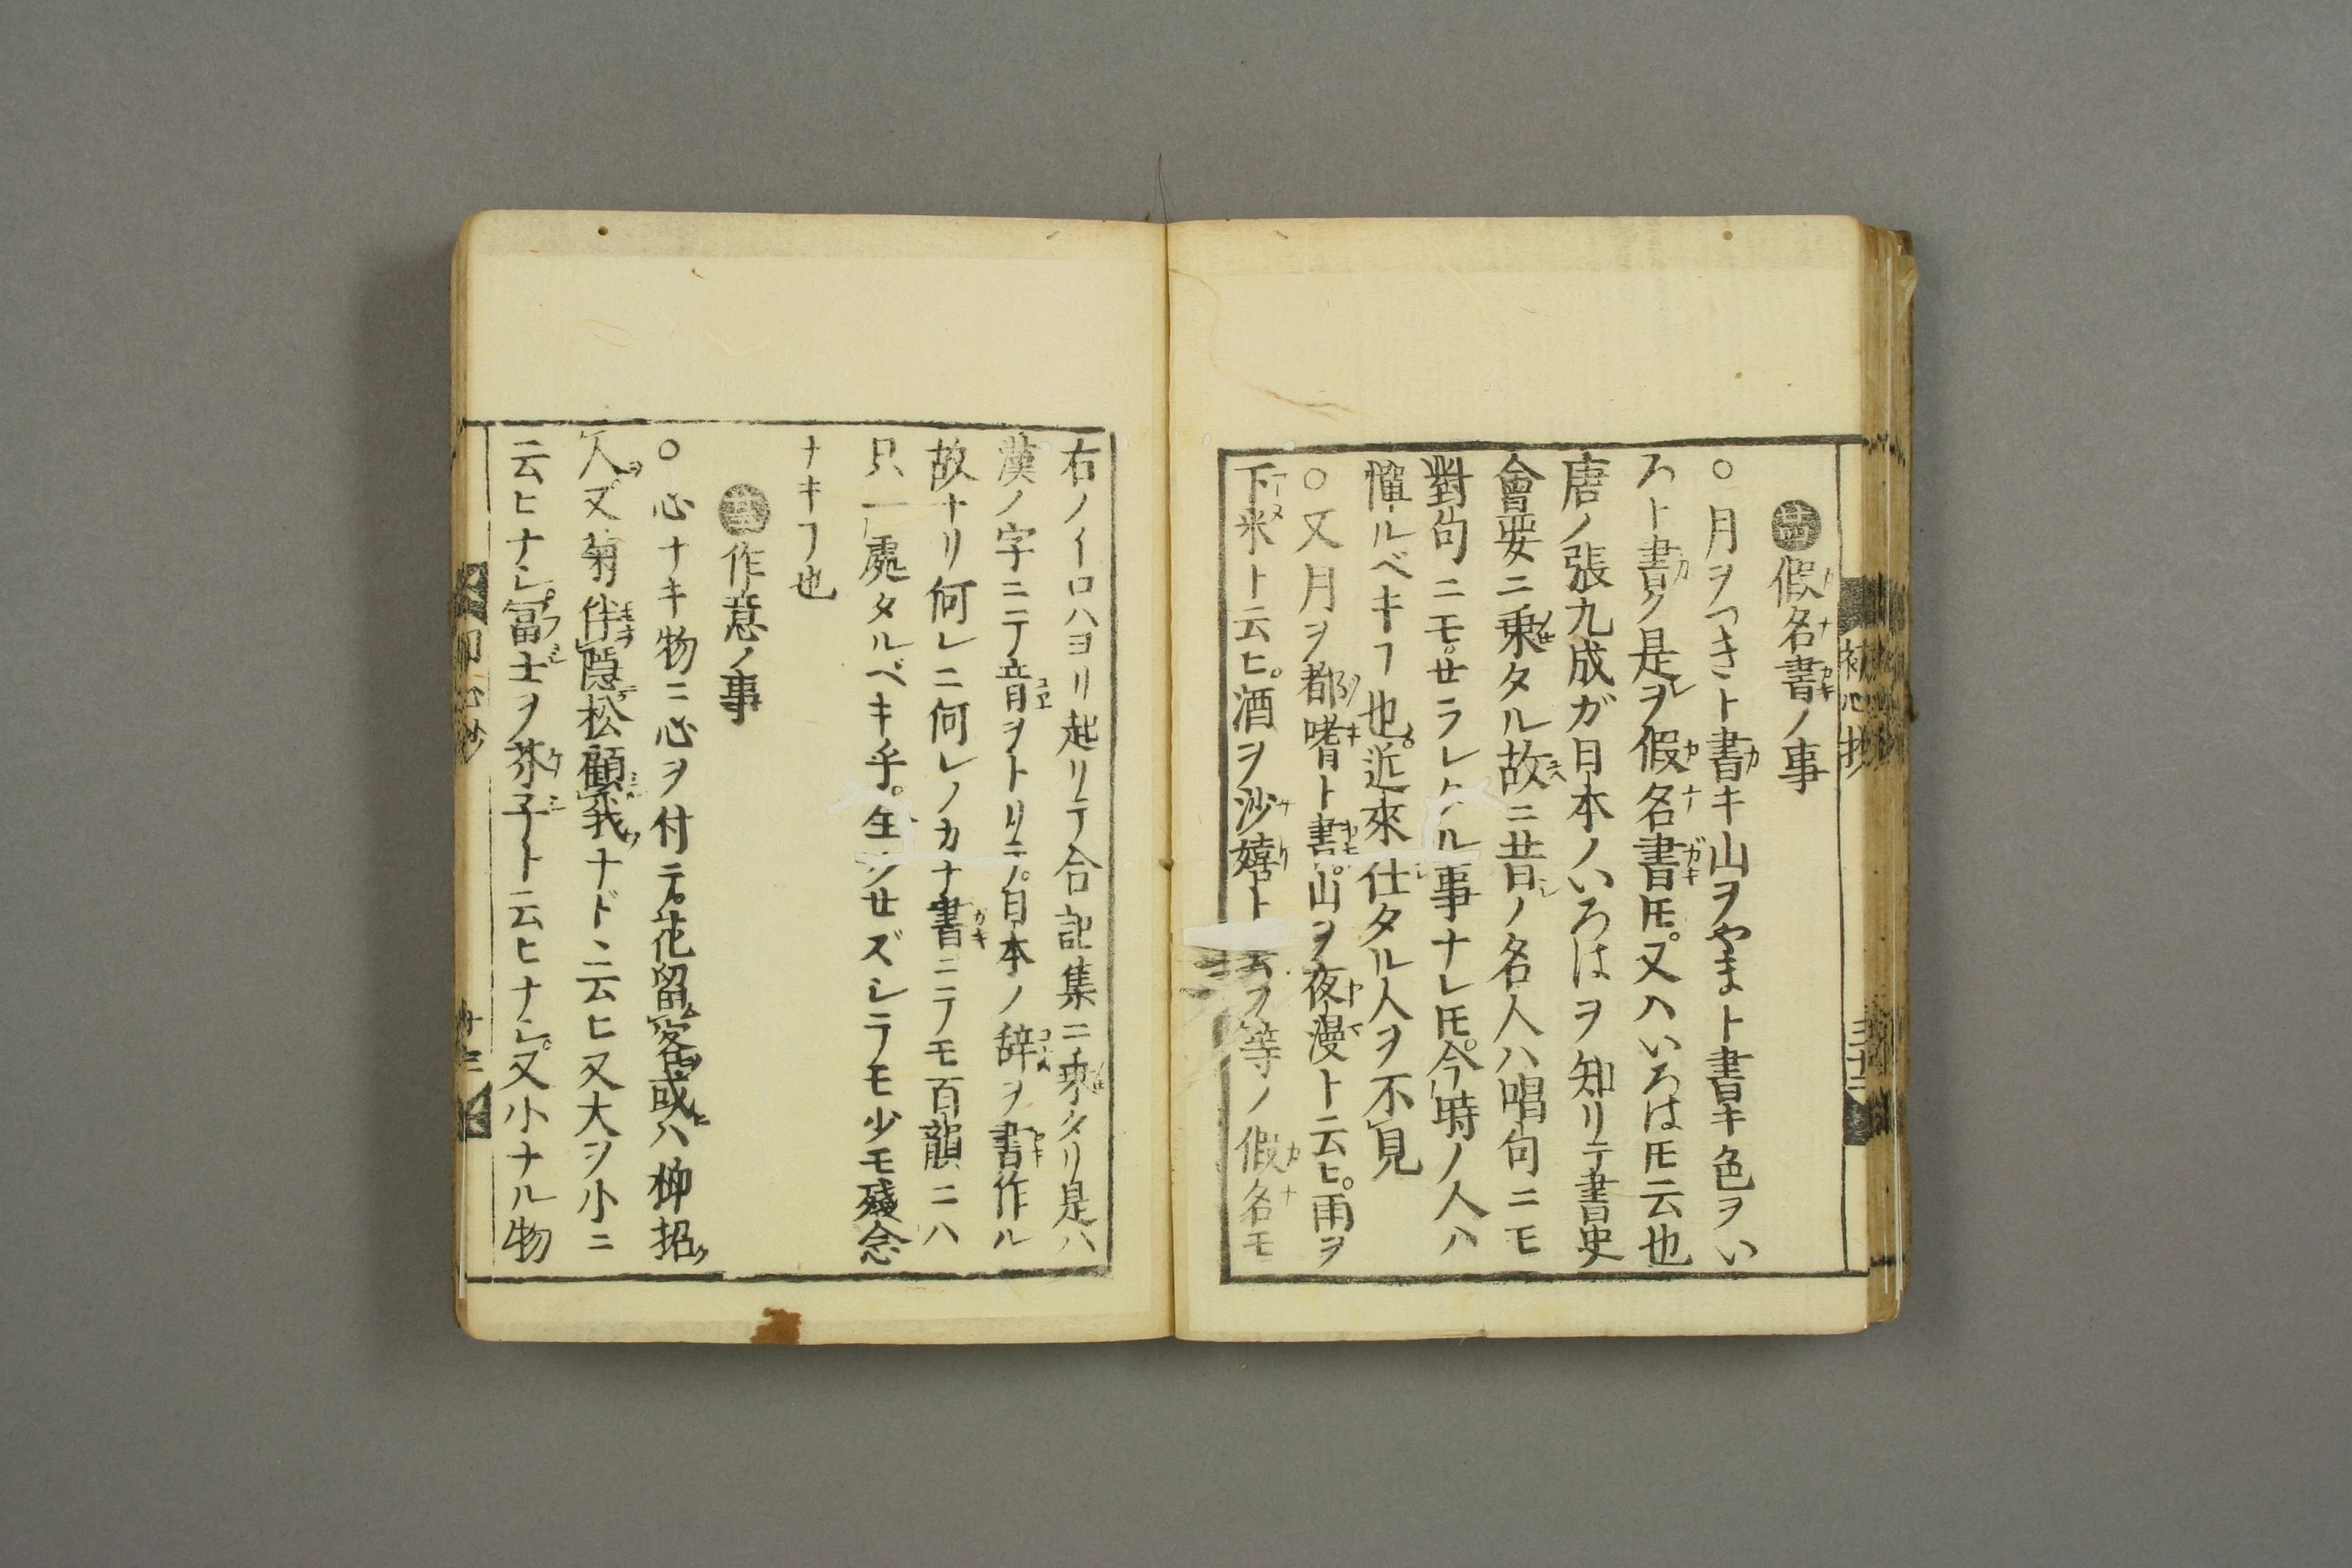 假名書ノ事
○月ヲつきト書キ山ヲやまト書キ色ヲい
ろト書ク是ヲ假名書𪜈又ハいろは𪜈云也
唐ノ張九成ガ日本ノいろはヲ知リテ書史
會要ニ乗タル故ニ昔ノ名人ハ唱句ニモ
對句ニモ。セラレケル事ナレ𪜈。今時ノ人ハ
憚ルベキヿ也。近來仕タル人ヲ不見
○又月ヲ都嗜ト書。山ヲ夜漫ト云ヒ。雨ヲ
下米ト云ヒ。酒ヲ沙嬉ト云フ等ノ假名モ
初心抄
三十二
右ノイロハヨリ起リテ合記集ニ乗タリ是ハ
漢ノ字ニテ音ヲトリテ。日本ノ辞ヲ書作ル
故ナリ何レニ何レノカナ書ニテモ百韻ニハ
只一處タルベキ乎。全クセズシテモ少モ殘念
ナキヿ也
作意ノ事
○心ナキ物ニ心ヲ付テ。花留客或ハ柳招
人又菊伴隠松顧我ナド云ヒ又大ヲ小ニ
云ヒナシ。冨士ヲ芥子ト云ヒナシ。又小ナル物